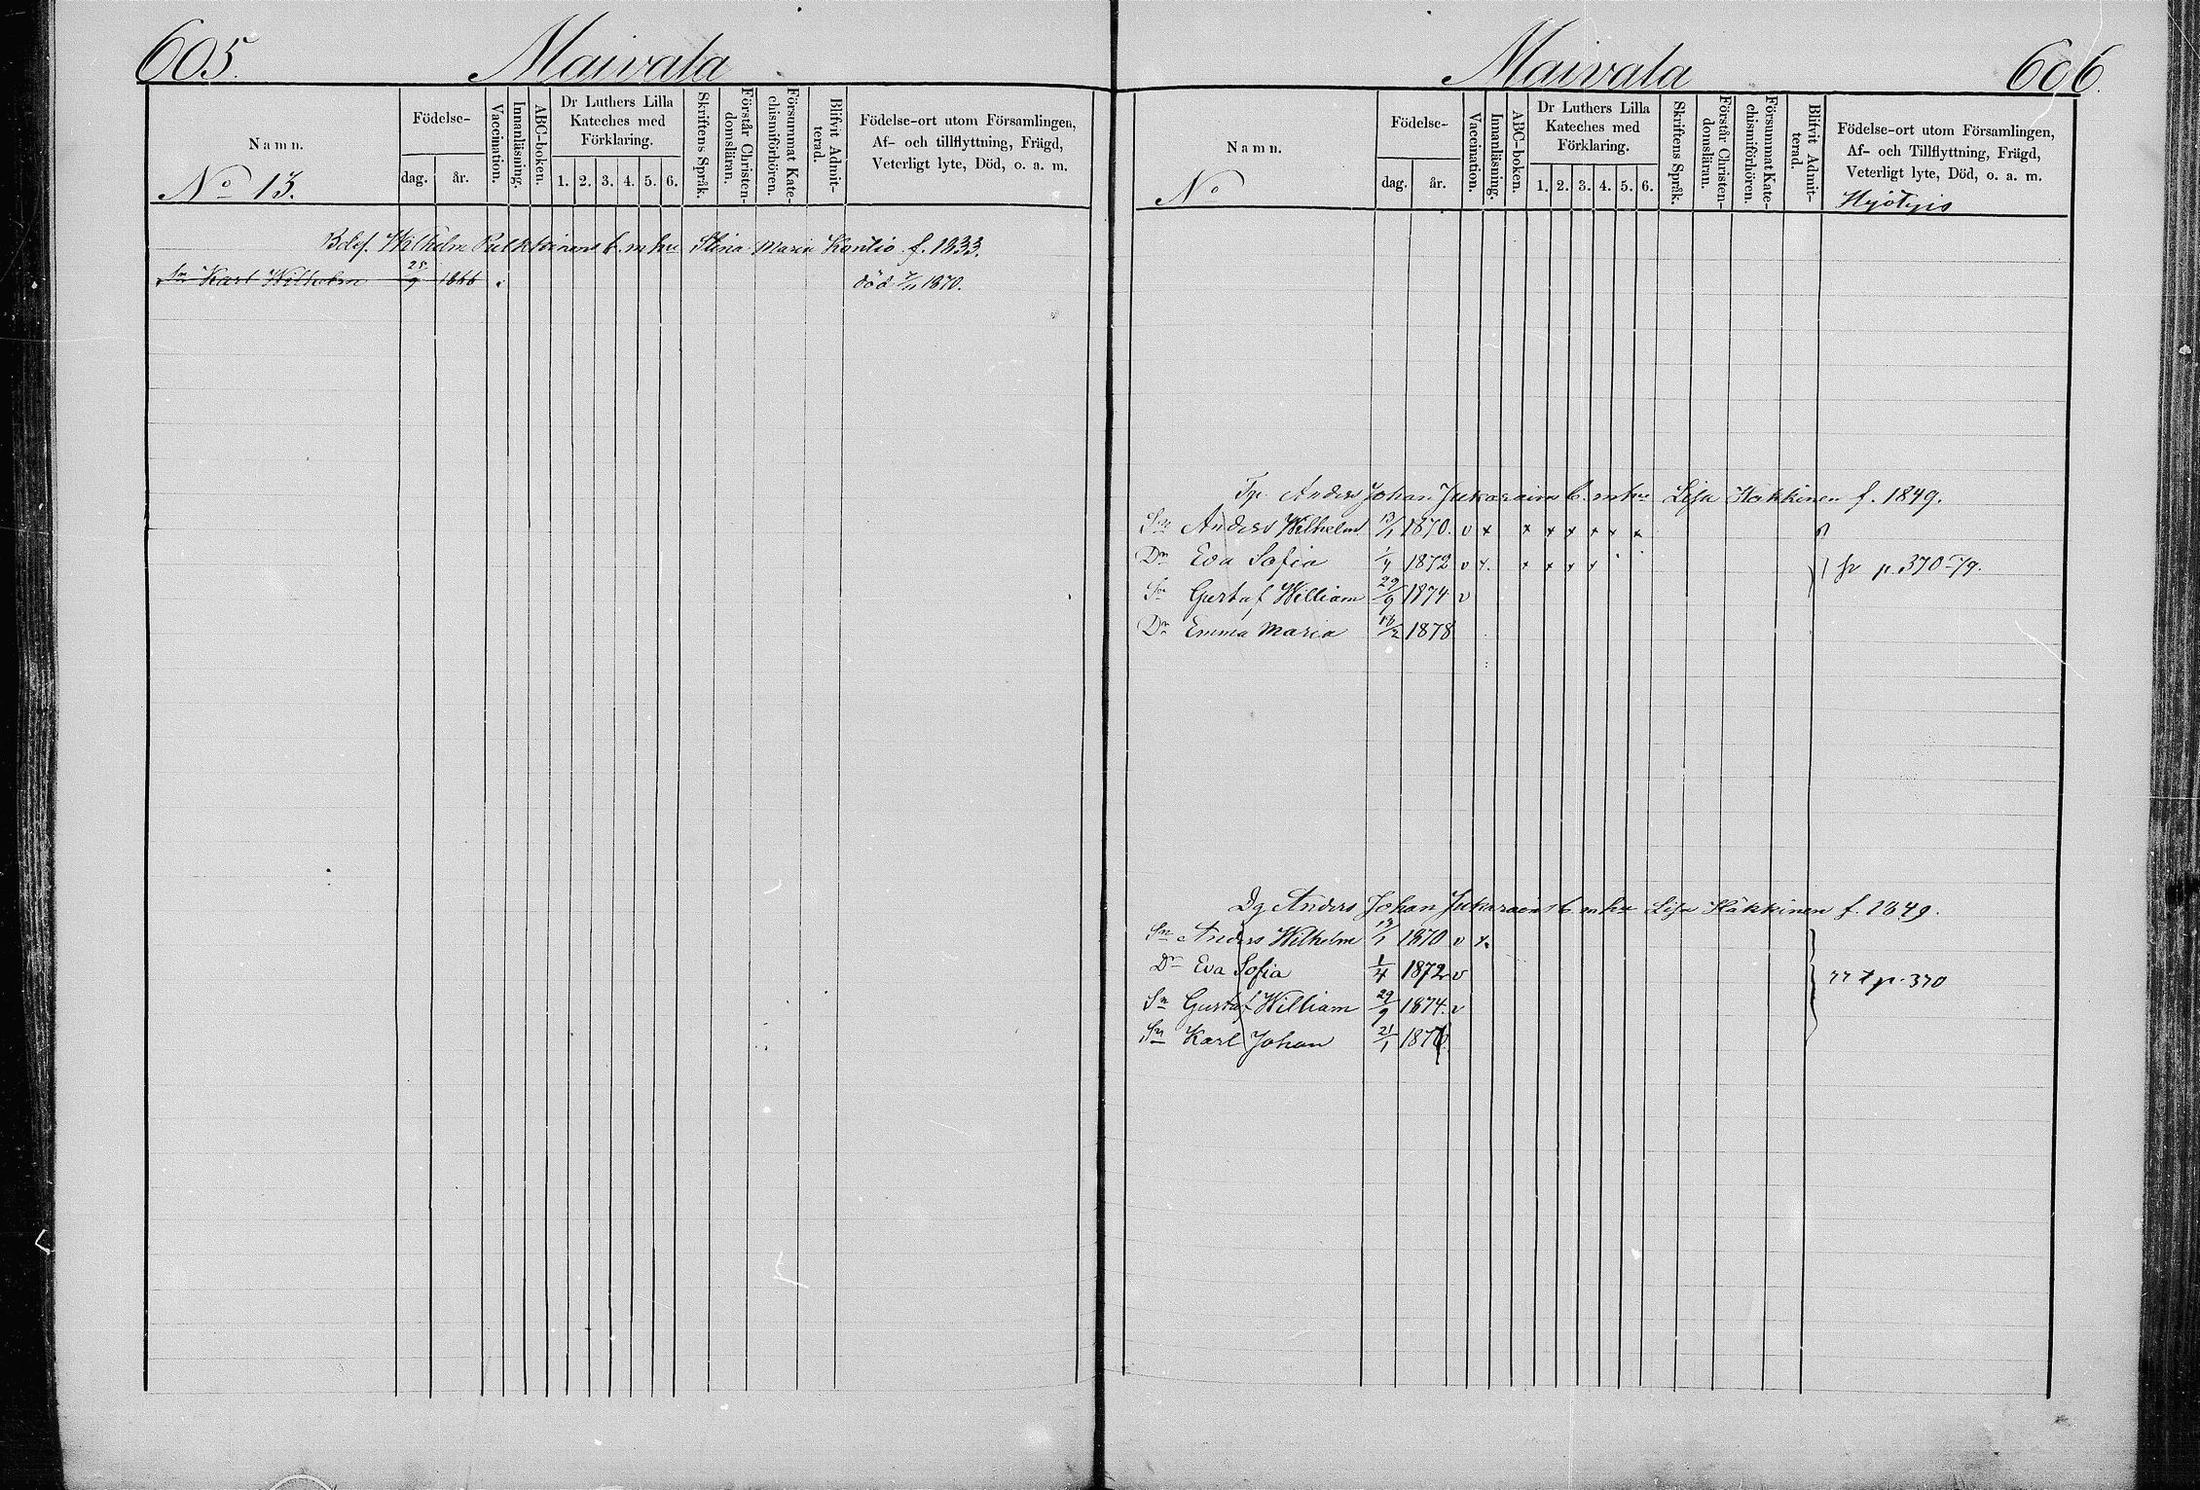 605. Maivala
Namn. Födelse- dag. år. Vaccination. Innanläsning. ABC-boken. Dr Luthers Lilla Kateches med Förklaring. 1. 2. 3. 4. 5. 6. Skriftens Språk. Förstår Christendomsläran. Försummat Katechismiförhören. Blifvit Admitterad. Födelse-ort utom Församlingen, Af- och tillflyttning, Frägd, Veterligt lyte, Död, o. a. m.
No 13.
Wilhelm b. m hu Stina Maria Kontio f. 1833.
Sn Karl Wilhelm 25/9 1866 död 7/11 1870.
Maivala 606.
Namn. Födelse- dag. år. Vaccination. Innanläsning. ABC-boken. Dr Luthers Lilla Kateches med Förklaring. 1. 2. 3. 4. 5. 6. Skriftens Språk. Förstår Christendomsläran. Försummat Katechismiförhören. Blifvit Admitterad. Födelse-ort utom Församlingen, Af- och Tillflyttning, Frägd, Veterligt lyte, Död, o. a. m.
No Hyötyis
Anders Johan Jukarains b. m hu Lisa Häkkinen f. 1849.
Sn Anders Wilhelm 13/1 1870. v x x x x x x x
Dr Eva Sofia 1/4 1872 v x. x x x x
Sn Gustaf William 29/9 1874 v
p. 370-79.
Dr Emma Maria 13/2 1878
Dg Anders Johan Jukarains b. m hu Lisa Häkkinen f. 1849.
Sn Anders Wilhelm 13/1 1870 v x
Dr Eva Sofia 1/4 1872 v
p. 370
Sn Gustaf William 29/9 1874. v
Sn Karl Johan 21/1 1876